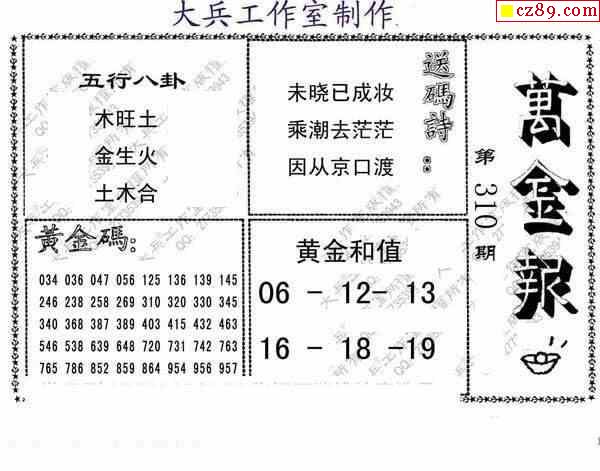 大兵工作室制作
cz89.com
五行八卦
木旺土
金生火
土木合
送碼詩：
未晓已成妆
乘潮去茫茫
因从京口渡
萬金報
第310期
黃金碼：
034 036 047 056 125 136 139 145
246 238 258 269 310 320 330 345
340 368 387 389 403 415 432 463
546 538 639 648 720 731 742 763
765 786 852 859 864 954 956 957
黄金和值
06 - 12- 13
16 - 18 -19